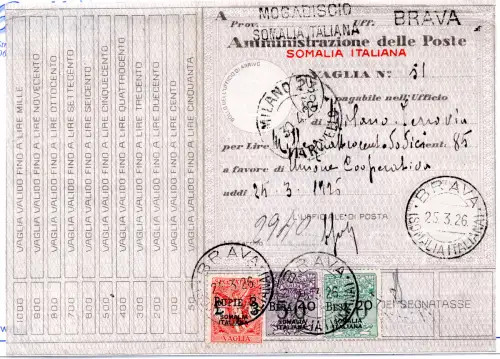 A
MOGADISCIO
Prov. Uff. BRAVA
SOMALIA ITALIANA
Amministrazione delle Poste
SOMALIA ITALIANA
VAGLIA N° 51
pagabile nell'Ufficio
di Milano Ferrovia
per Lire 85
a favore di Unione Cooperativa
addì 25.3.1926
L'UFFICIALE DI POSTA
MILANO
BRAVA
25.3.26
(SOMALIA ITALIANA)
VAGLIA VALIDO FINO A LIRE MILLE
VAGLIA VALIDO FINO A LIRE NOVECENTO
VAGLIA VALIDO FINO A LIRE OTTOCENTO
VAGLIA VALIDO FINO A LIRE SETTECENTO
VAGLIA VALIDO FINO A LIRE SEICENTO
VAGLIA VALIDO FINO A LIRE CINQUECENTO
VAGLIA VALIDO FINO A LIRE QUATTROCENTO
VAGLIA VALIDO FINO A LIRE TRECENTO
VAGLIA VALIDO FINO A LIRE DUECENTO
VAGLIA VALIDO FINO A LIRE CENTO
VAGLIA VALIDO FINO A LIRE CINQUANTA
900 800 700 600 500 400 300 200 100 50
BRAVA
BRAVA
RUPIE 3
SOMALIA
ITALIANA
VAGLIA
SOMALIA
ITALIANA
BESE 20
SOMALIA
ITALIANA
DEI SEGNATASSE